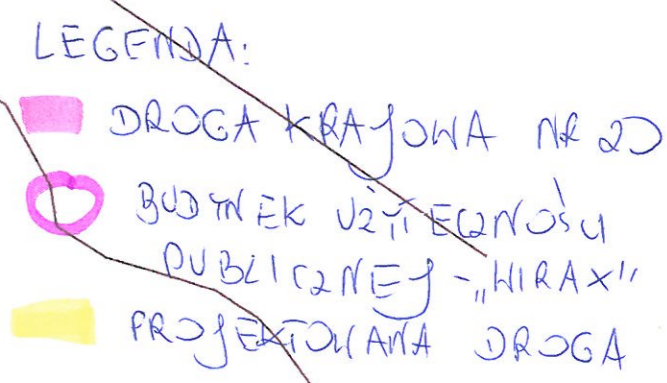 LEGENDA:
DROGA KRAJOWA NR 20
BUDYNEK UŻYTECZNOŚCI
PUBLICZNEJ - „WIRAX"
PROJEKTOWANA DROGA